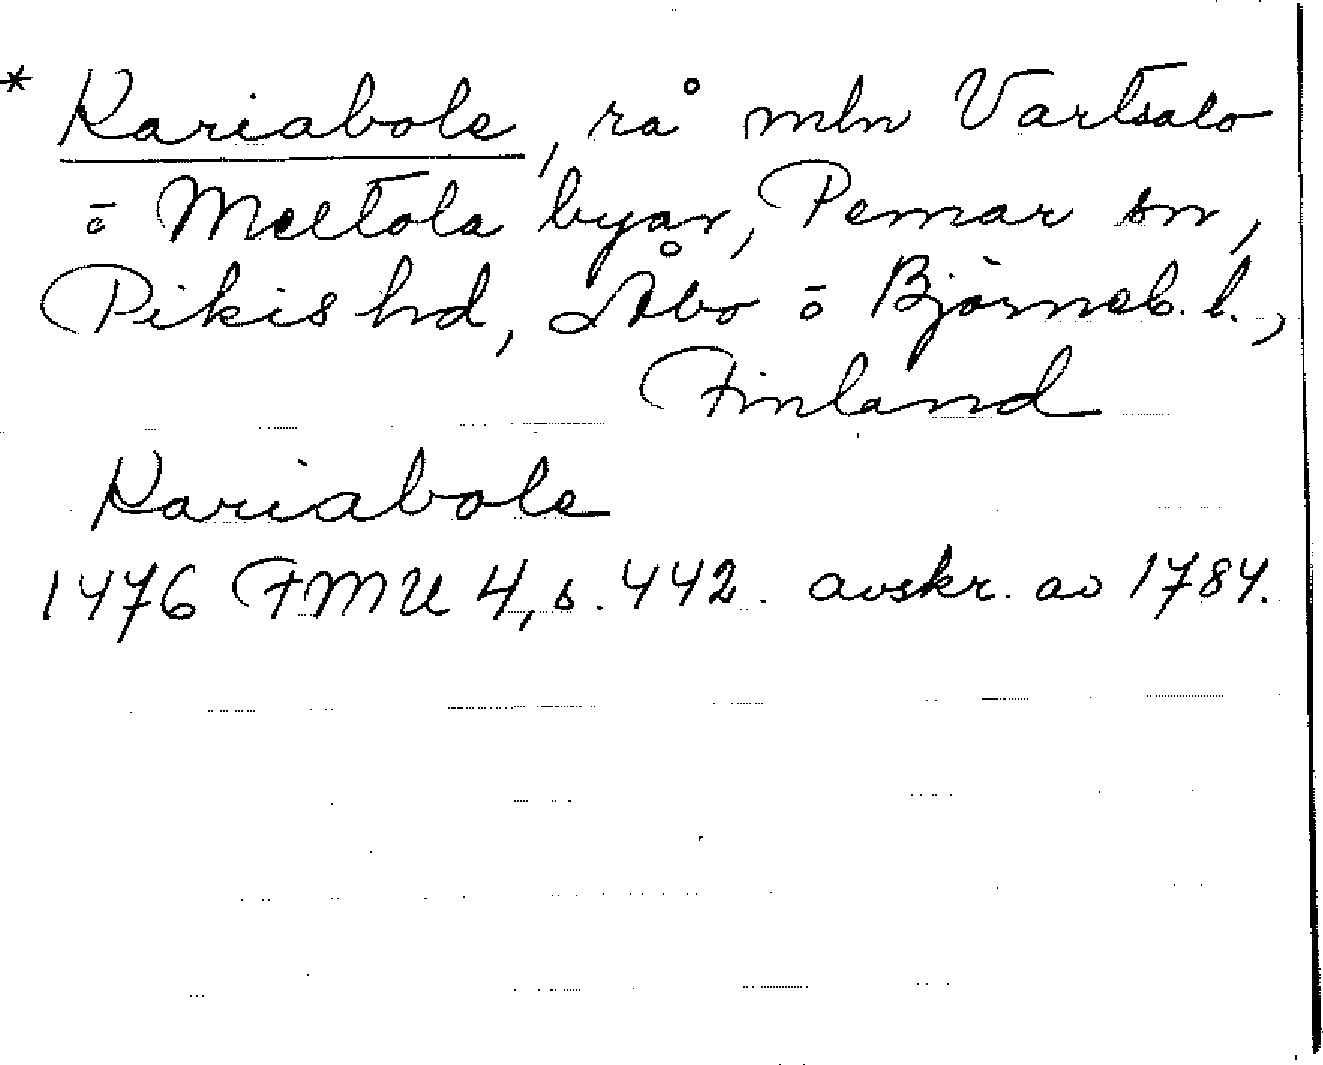 * Kariabole, rå mln Vartsalo
ō Meltola byar, Pemar sn,
Pikis hd, Åbo ō Björneb. l.,
Finland
Kariabole
1476 FMU 4, s. 442. avskr. av 1784.